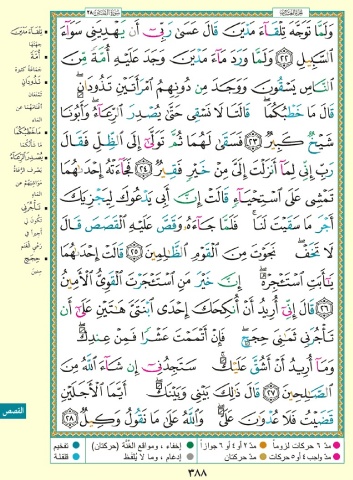 وَلَمَّا تَوَجَّهَ تِلْقَاءَ مَدْيَنَ قَالَ عَسَىٰ رَبِّي أَن يَهْدِيَنِي سَوَاءَ
السَّبِيلِ ٢٢ وَلَمَّا وَرَدَ مَاءَ مَدْيَنَ وَجَدَ عَلَيْهِ أُمَّةً مِّنَ
النَّاسِ يَسْقُونَ وَوَجَدَ مِن دُونِهِمُ امْرَأَتَيْنِ تَذُودَانِ ۖ
قَالَ مَا خَطْبُكُمَا ۖ قَالَتَا لَا نَسْقِي حَتَّىٰ يُصْدِرَ الرِّعَاءُ ۖ وَأَبُونَا
شَيْخٌ كَبِيرٌ ٢٣ فَسَقَىٰ لَهُمَا ثُمَّ تَوَلَّىٰ إِلَى الظِّلِّ فَقَالَ
رَبِّ إِنِّي لِمَا أَنزَلْتَ إِلَيَّ مِنْ خَيْرٍ فَقِيرٌ ٢٤ فَجَاءَتْهُ إِحْدَاهُمَا
تَمْشِي عَلَى اسْتِحْيَاءٍ قَالَتْ إِنَّ أَبِي يَدْعُوكَ لِيَجْزِيَكَ
أَجْرَ مَا سَقَيْتَ لَنَا ۚ فَلَمَّا جَاءَهُ وَقَصَّ عَلَيْهِ الْقَصَصَ قَالَ
لَا تَخَفْ ۖ نَجَوْتَ مِنَ الْقَوْمِ الظَّالِمِينَ ٢٥ قَالَتْ إِحْدَاهُمَا
يَا أَبَتِ اسْتَأْجِرْهُ ۖ إِنَّ خَيْرَ مَنِ اسْتَأْجَرْتَ الْقَوِيُّ الْأَمِينُ
٢٦ قَالَ إِنِّي أُرِيدُ أَنْ أُنكِحَكَ إِحْدَى ابْنَتَيَّ هَاتَيْنِ عَلَىٰ أَن
تَأْجُرَنِي ثَمَانِيَ حِجَجٍ ۖ فَإِنْ أَتْمَمْتَ عَشْرًا فَمِنْ عِندِكَ ۖ
وَمَا أُرِيدُ أَنْ أَشُقَّ عَلَيْكَ ۚ سَتَجِدُنِي إِن شَاءَ اللَّهُ مِنَ
الصَّالِحِينَ ٢٧ قَالَ ذَٰلِكَ بَيْنِي وَبَيْنَكَ ۖ أَيَّمَا الْأَجَلَيْنِ
قَضَيْتُ فَلَا عُدْوَانَ عَلَيَّ ۖ وَاللَّهُ عَلَىٰ مَا نَقُولُ وَكِيلٌ ٢٨
تِلْقَاءَ مَدْيَنَ
جهتها
أُمَّةً
جماعة كثيرة
تَذُودَانِ
تمنعان
أغنامهما عن
الماء
مَا خَطْبُكُمَا
ما شأنكما
يُصْدِرَ الرِّعَاءُ
يصرف الرعاة
مواشيهم عن
الماء
تَأْجُرَنِي
تكون لي
أجيرًا في
رعي الغنم
حِجَجٍ
سنين
القصص
مدّ ٦ حركات لزوماً
مدّ ٢ أو ٤ أو ٦ جوازاً
إخفاء، ومواقع الغُنَّة (حركتان)
تفخيم
مدّ واجب ٤ أو ٥ حركات
مدّ حركتان
إدغام، وما لا يُلفظ
قلقلة
٣٨٨